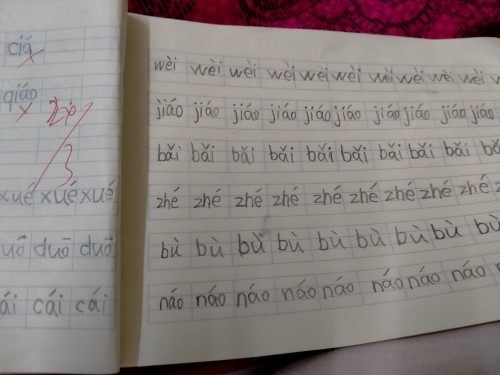 ciá
qiáo
xué xué xué
duō duō
cái cái
wèi wèi wèi wèi wèi wèi wèi wèi wèi wèi
jiáo jiáo jiáo jiáo jiáo jiáo jiáo jiáo jiáo jiáo
bǎi bǎi bǎi bǎi bǎi bǎi bǎi bǎi bǎi
zhé zhé zhé zhé zhé zhé zhé zhé
bù bù bù bù bù bù bù bù bù
náo náo náo náo náo náo náo náo